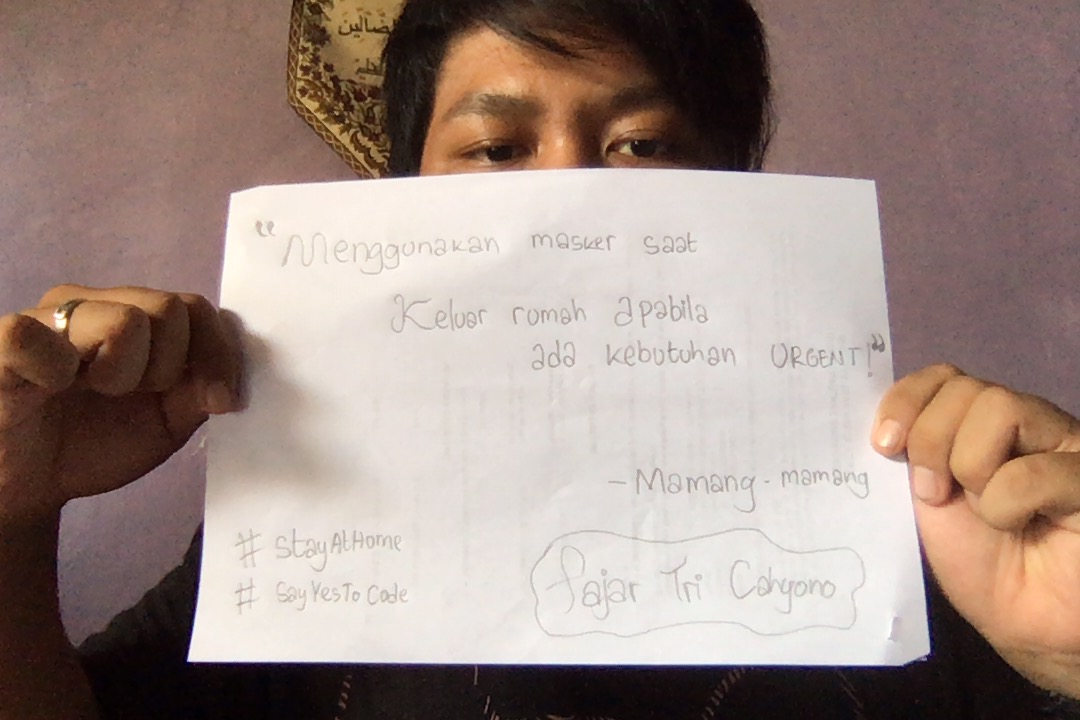 الضالين
“Menggunakan masker saat
Keluar rumah apabila
ada kebutuhan URGENT!”
- Mamang - mamang
# StayAtHome
# SayYesTo Code
Fajar Tri Cahyono